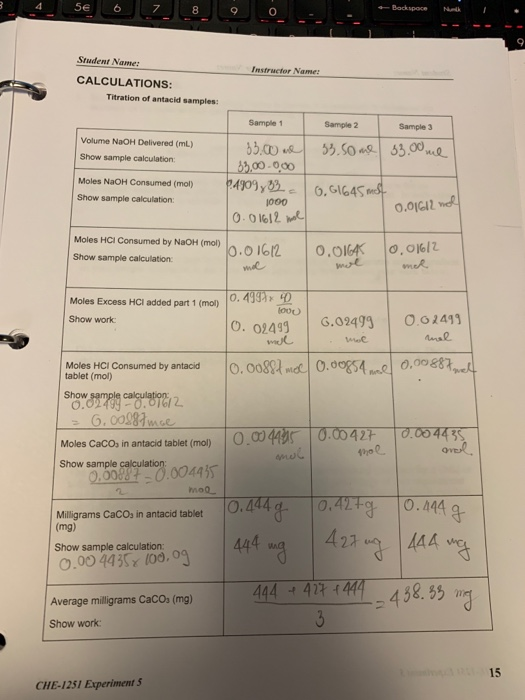 4 5€ 6 7 8 9 0 Backspace /
9
Student Name: Instructor Name:
CALCULATIONS:
Titration of antacid samples:
Sample 1 Sample 2 Sample 3
Volume NaOH Delivered (mL)
Show sample calculation:
33.00 ml 33.50 ml 33.00 ml
33.00-0.00
Moles NaOH Consumed (mol)
Show sample calculation:
0.4909 x 33 =
1000
0.01612 mol
0.01645 mol
0.01612 mol
Moles HCl Consumed by NaOH (mol)
Show sample calculation:
0.01612 mol
0.01645 mol
0.01612 mol
Moles Excess HCl added part 1 (mol)
Show work:
1000
0.02499 mol
0.02499 mol
0.02499 mol
Moles HCl Consumed by antacid
tablet (mol)
0.00887 mol 0.00854 mol 0.00887 mol
Show sample calculation:
0.02499-0.01612
= 0.00887 mol
Moles CaCO₃ in antacid tablet (mol)
Show sample calculation:
0.00887 = 0.004435
2 mol
0.004435 mol
0.00427 mol
0.004435 mol
Milligrams CaCO₃ in antacid tablet
(mg)
Show sample calculation:
0.004435 x 100.09
0.444 g 0.427 g 0.444 g
444 mg 427 mg 444 mg
Average milligrams CaCO₃ (mg)
Show work:
444 + 427 + 444
3
= 438.33 mg
CHE-1251 Experiment 5
15